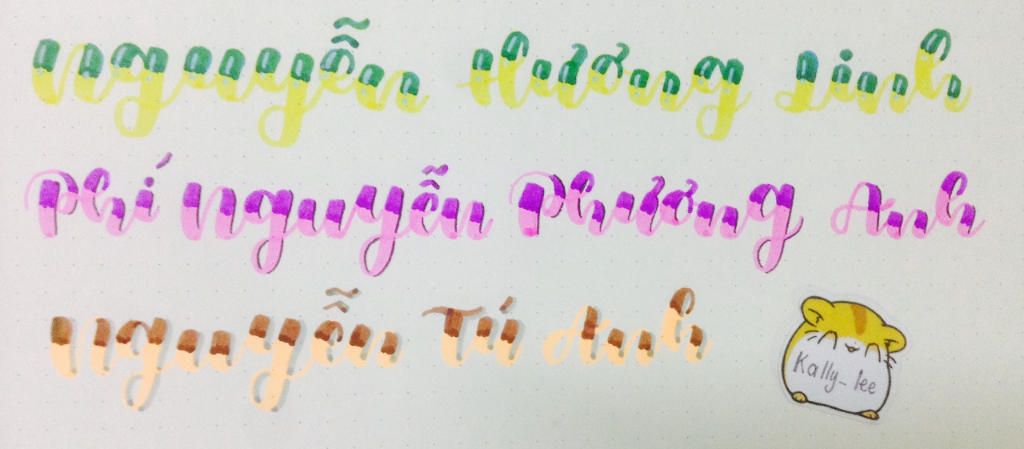 Nguyễn Hương Linh
Phí Nguyễn Phương Anh
Nguyễn Tú Anh
Kally_lee